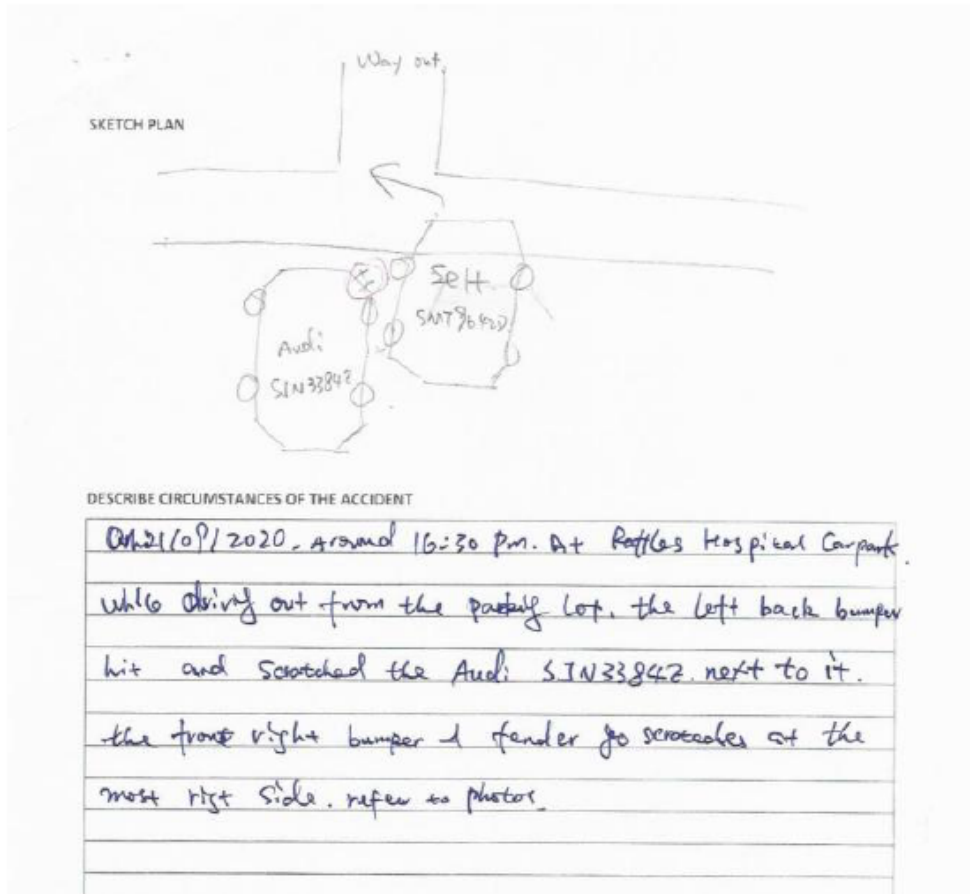 Way out
SKETCH PLAN
Self
Audi
SJN3384Z
DESCRIBE CIRCUMSTANCES OF THE ACCIDENT
2020. Around 16:30 pm. At Raffles Hospital Carpark.
while driving out from the parking lot. the left back bumper
hit and scratched the Audi SJN3384Z. next to it.
the front right bumper & fender go scratches at the
most right side. refer to photos.